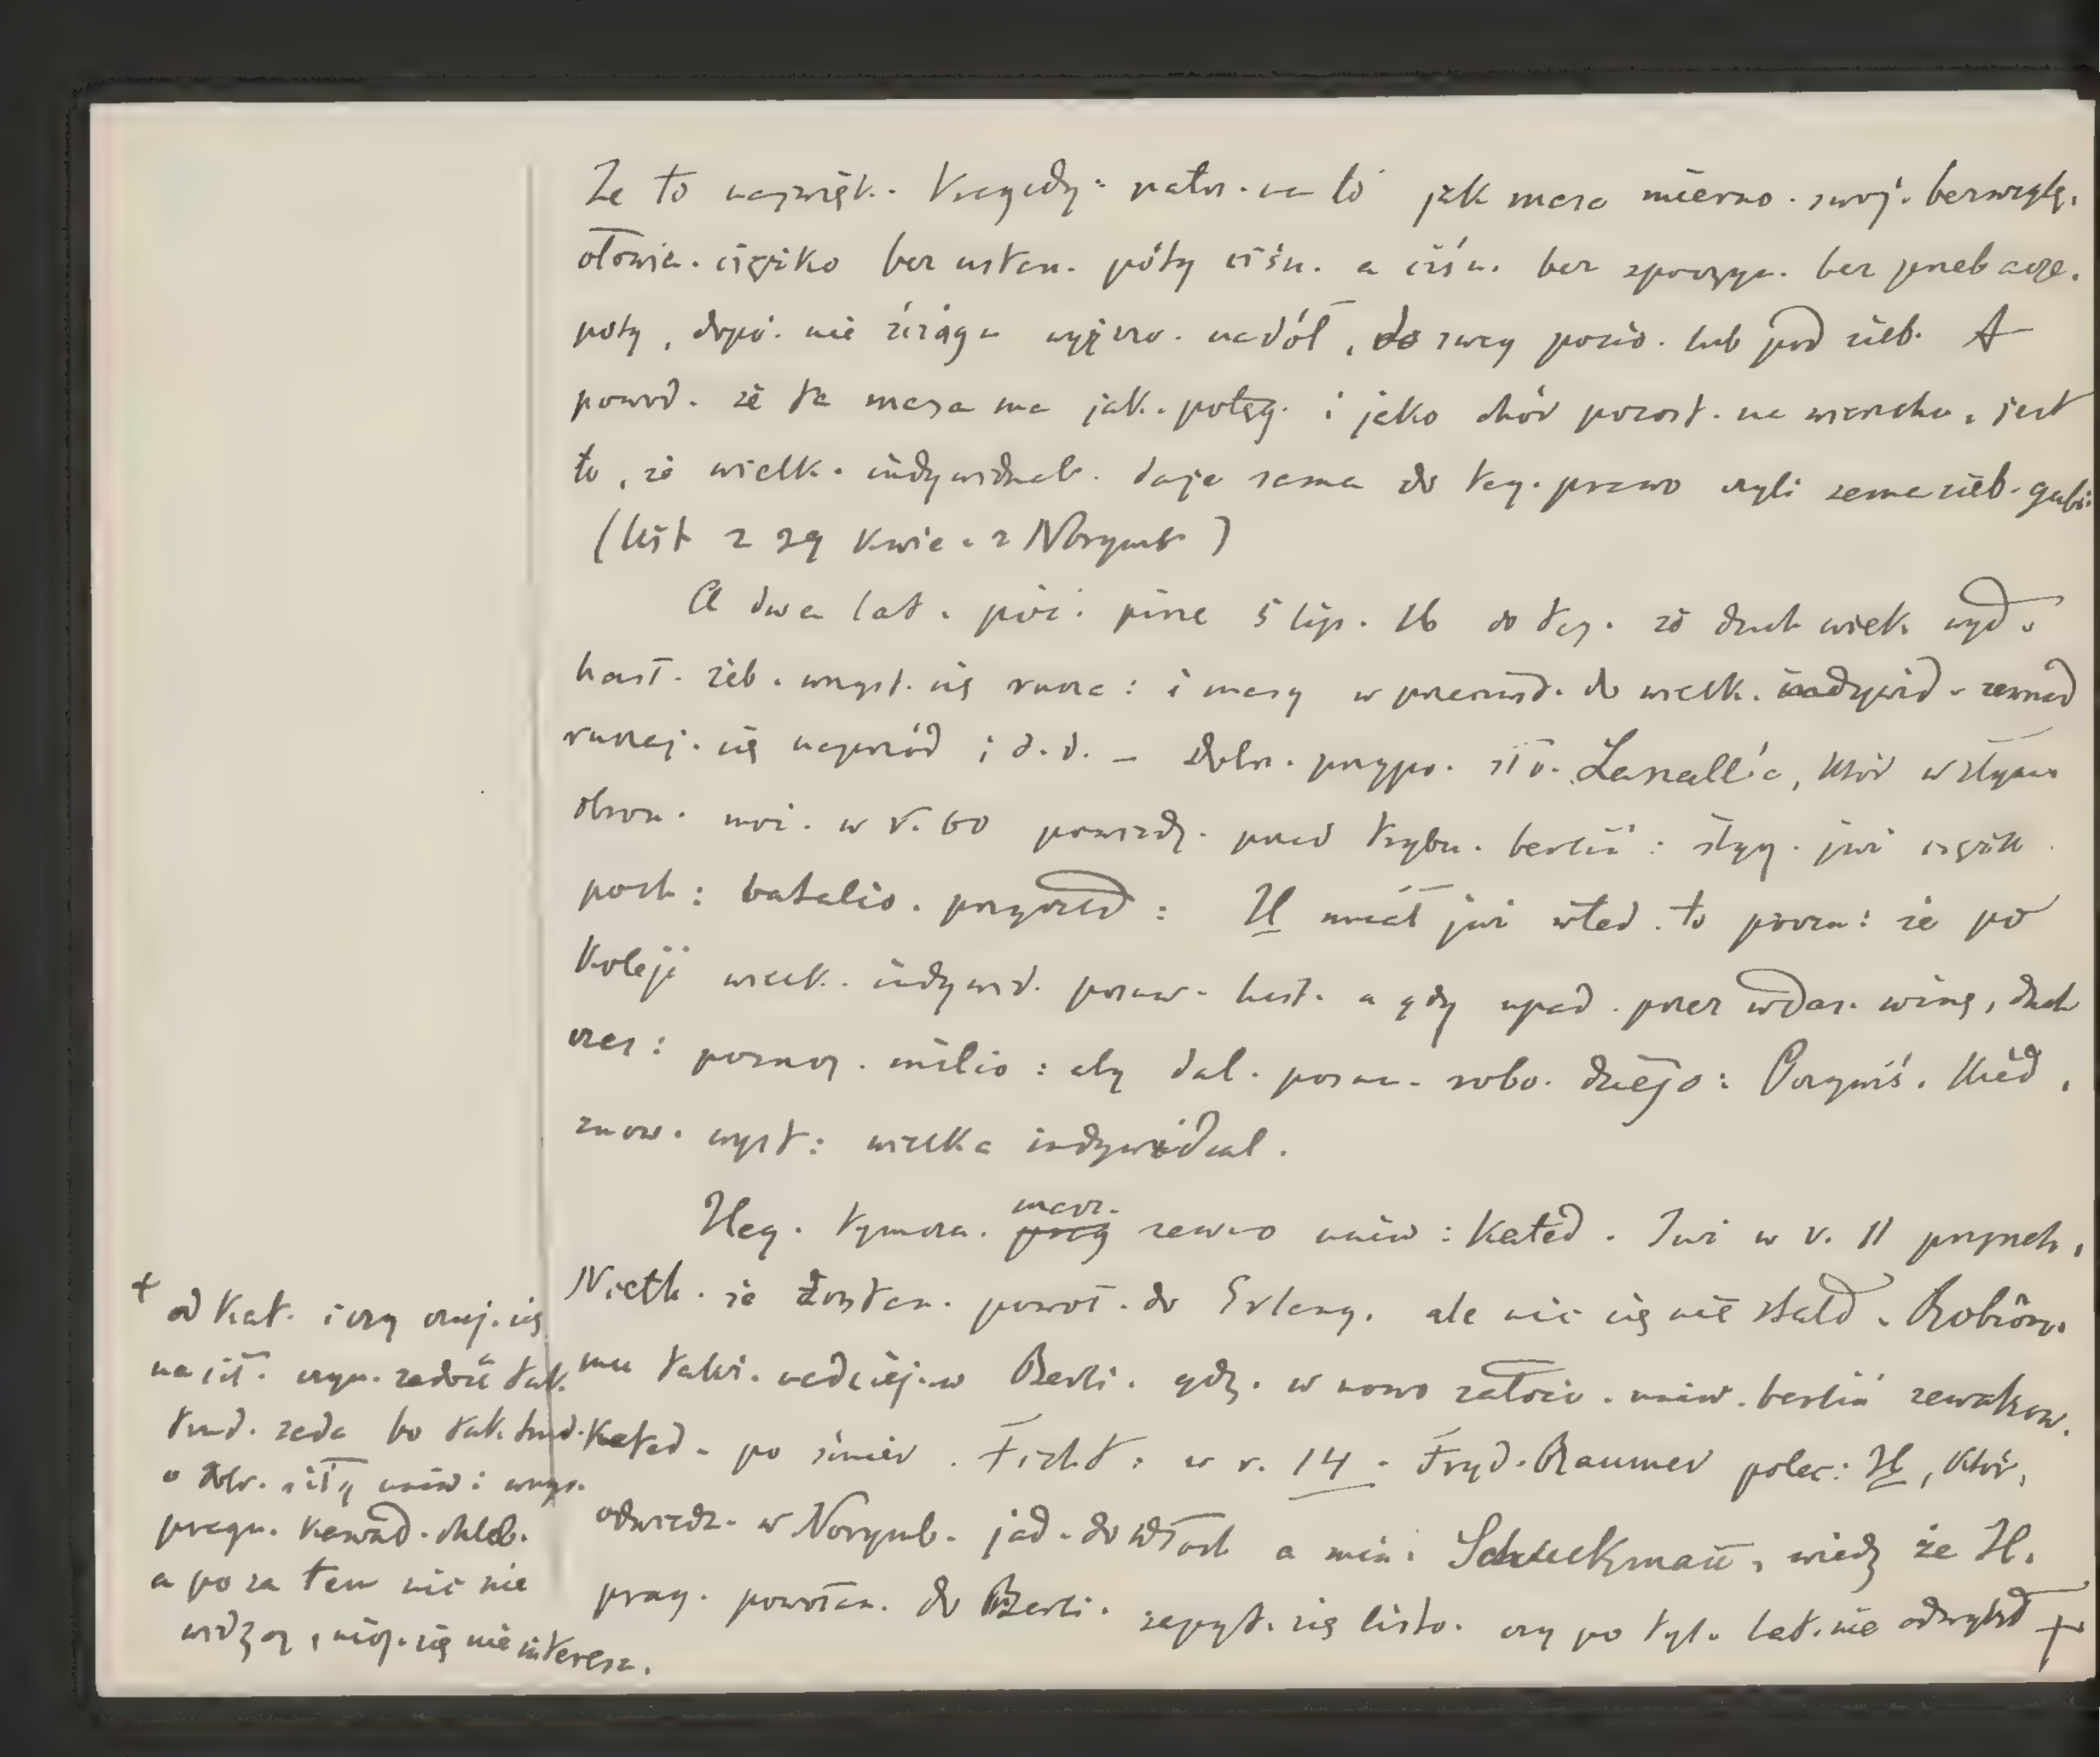 Że to najwięk. tragedy: patrz. na to jak masa mierno. swoj. bezwzglę.
ołowia. ciężko bez ustan. póty ciśn. a ciśn. bez spoczyn. bez przebacze.
póty, dopó. nie ściągn wyższo. nadół, do swey pozio. lub pod sieb. A
powod. że ta masa ma jak. potęg. i jako chór pozost. na wierzchu, jest
to, że wielk. indywidual. daje sama do teg. prawo czyli sama sieb. gubi:
(list z 29 kwie. z Norymb.)
A dwa lat. póź. pisze 5 lip. 16 do teg. że duch wiek. wyd.
hasł. żeb. wszyst. się rusza: i masy w przeciwst. do wielk. indywid. 
ruszaj. się naprzód i t.d. – Dobr. przypo. sło. Lassall'a, któr w słynn
obron. mow. w r. 60 powiedz. przed trybu. berliń: słysz. już ciężk.
poch: batalio. przyszł: H umiał już wted. to pozn: że po
koleji wielk. indywid. posuw. hist. a gdy upad. przez własn. winę, duch
czas: porusz. milio: aby dal. posuw. robo. dziejo: Oczywiś. kied.
znow. wyst: wielka indywidual.
Heg. tymcza. marz. pracy zawsze uniw: kated. Już w r. 11 przypuch.
Nieth. że dostan. powoł. do Erlang. ale nic się nie stało. Robion.
mu także. nadziej. w Berli. gdz. w nowo założo. uniw. berliń zawakow.
kated. po śmier. Ficht: w r. 14. Fryd. Raumer polec: H, któr.
odwiedz. w Norymb. jad. do Włoch a min: Schuckmañ, wiedz że H.
prag. powołan. do Berli. zapyt. się listo. czy po tyl. lat. nie odwykł +
+ od kat. i czy czuj. się
na sił. uczyn. zadość tak.
trud. zada bo tak. trud.
o dobr. siły uniw: wszys.
pragn. kawał. chleb.
a po za tem nic nie
widzą, niczy. się nie interesu.